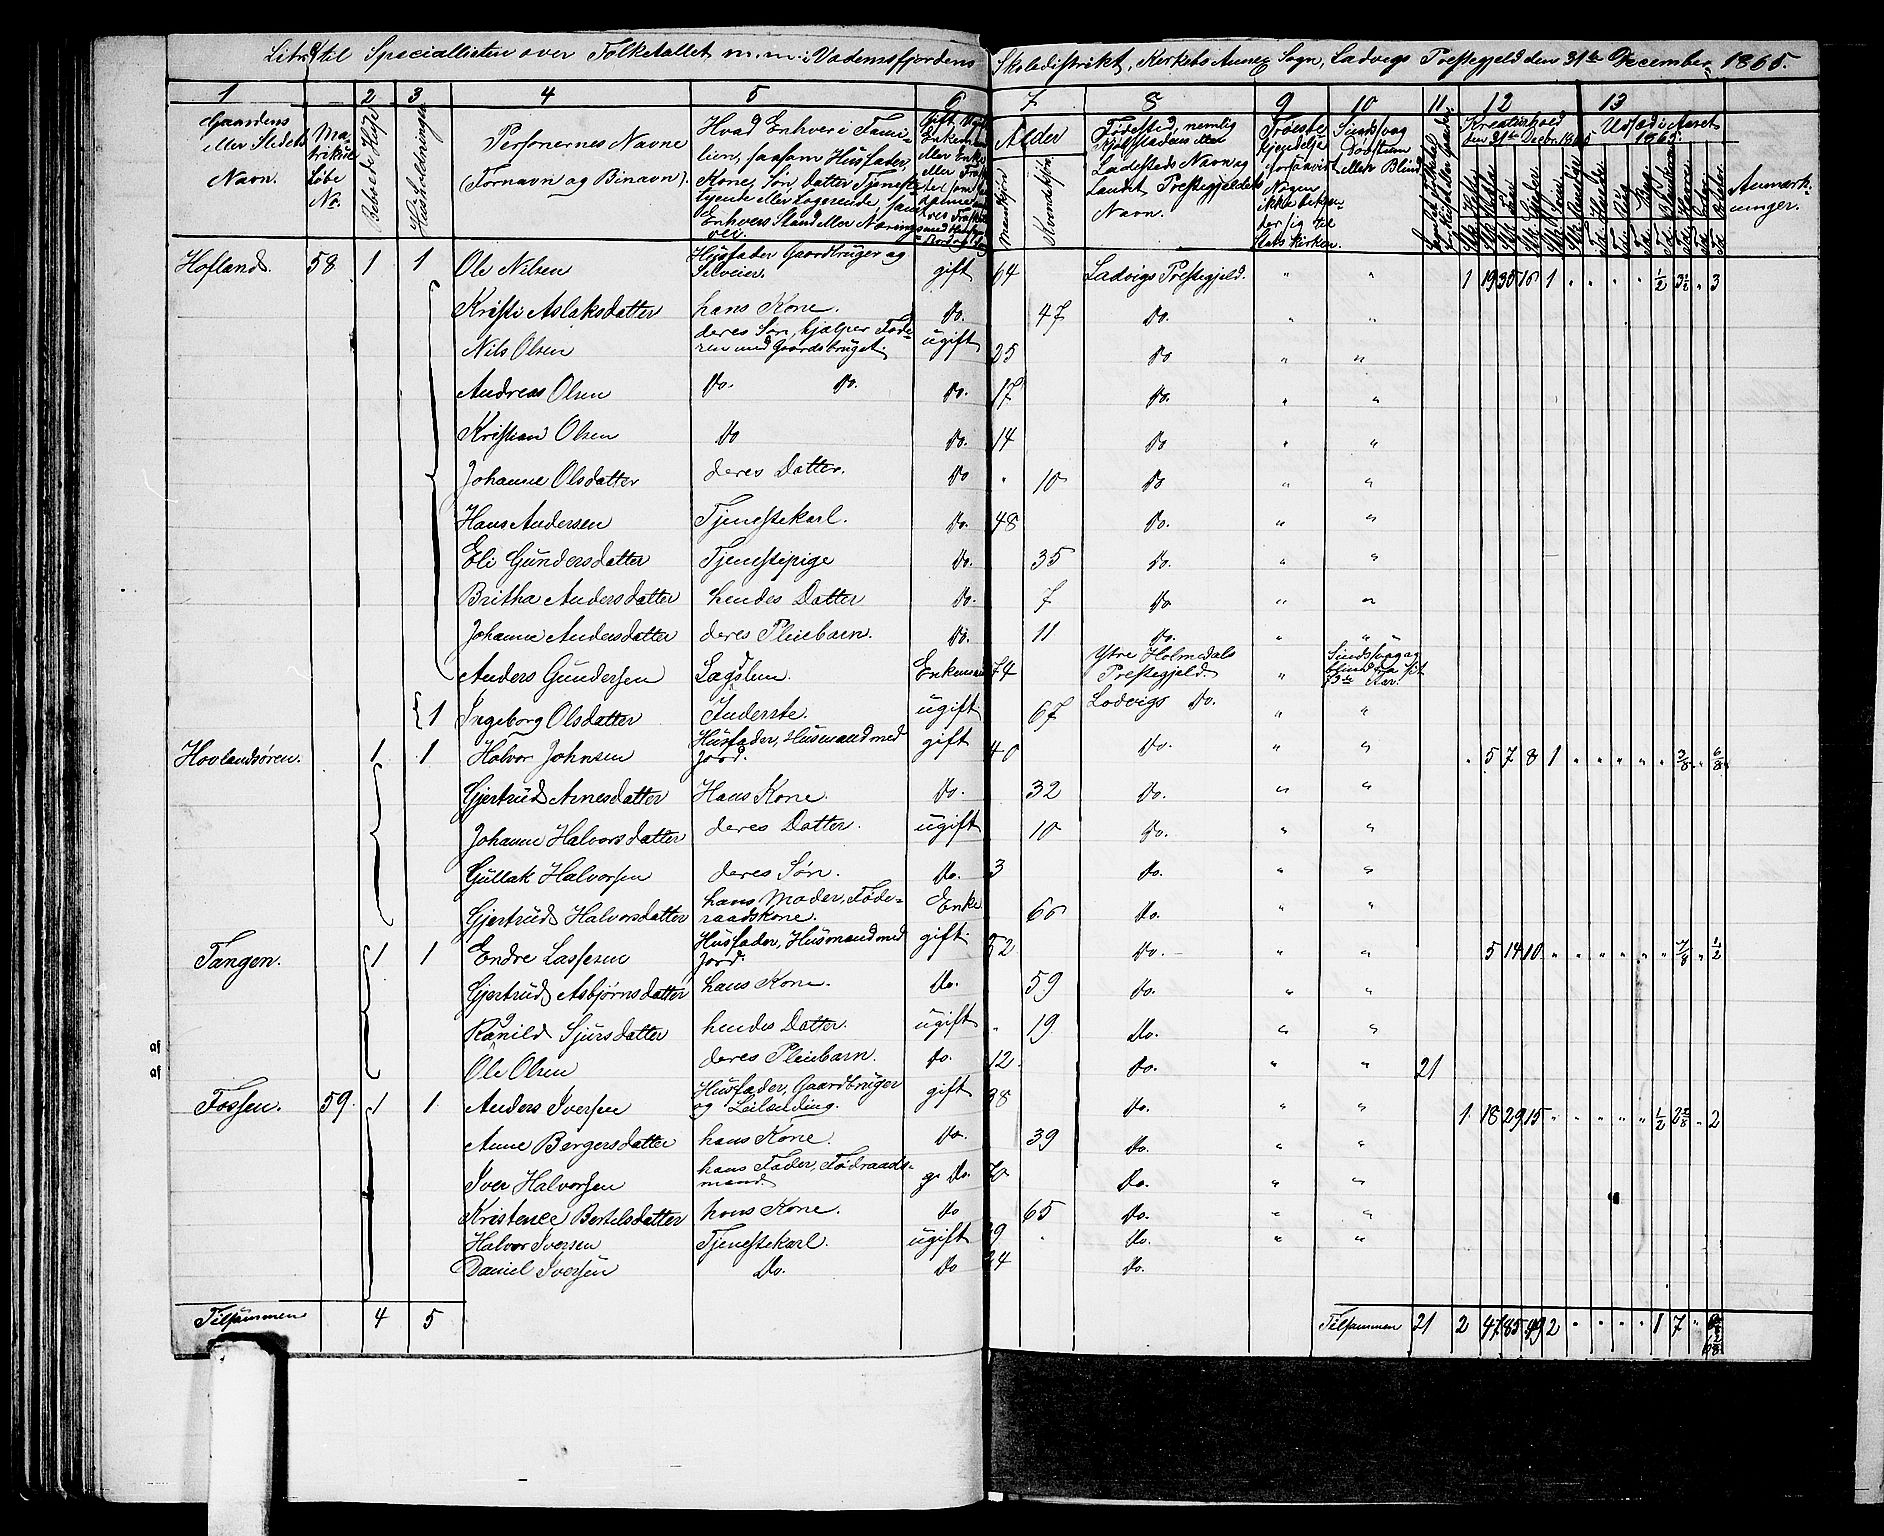 til Speciallisten over Folketallet m. m. i Vademsfjordens Skoledistrikt, Kirkebø Annex Sogn, Ladvigs Prestegjeld den 31te December 1865.
1 2 3 4 5 6 7 8 9 10 11 12 13
Gaardens eller Stedets Navn.
Matrikul Løbe No.
Beboede Huse
Huusholdninger
Personernes Navne (Fornavn og Binavn).
Hvad Enhver i Familien, saasom Husfader, Kone, Søn, Datter, Tjenestetyende eller Logerende, samt Enhvers Stand eller Næringsvei.
Alder
Mandkjøn
Kvindekjøn
Fødested, nemlig Præstegjeldets eller Ladesteds Navn og Landets Prestegjeldets Navn.
Troesbekjendelse forsaavidt Nogen ikke bekjender sig til Statskirken.
Sindssvag Døvstum eller Blind
Kreaturhold den 31te Decbr. 1865
Udsæd i Aaret 1865.
Anmærkninger.
Hofland. 58 1 1 Ole Nilsen Husfader Gaardbruger og Selveier. gift 64 Ladvigs Prestegjeld. " " 1 19 35 16 1 " " " " 1/2 3 1/2 " 3
Kristi Aslaksdatter hans Kone. Do. 47 Do. " "
Nils Olsen deres Søn, hjælper Faderen med Gaardsbruget. ugift 25 Do " "
Andreas Olsen Do. Do. Do. 17 Do. " "
Kristian Olsen Do Do. 14 Do " "
Johanne Olsdatter deres Datter. Do " 10 Do " "
Hans Andersen Tjenestekarl. Do. 48 Do. " "
Eli Gundersdatter Tjenestepige Do. 35 Do. " "
Britha Andersdatter hendes Datter Do. 7 Do " "
Johanne Andersdatter deres Pleiebarn. Do. 11 Do. " "
Anders Gundersen Lægslem. Enkemand 74 Ytre Holmedals Prestegjeld. " Sindssvag og blind fra sit
{1 Ingeborg Olsdatter Inderste. ugift 67 Ladvigs Do. " "
Hovlandsøren. 1 1 Halvor Johnsen Husfader, Husmand med Jord. gift 40 Do. " " " 5 7 8 1 " " " " " 3/8 " 6/8
Gjertrud Arnesdatter Hans Kone. Do. 32 Do. " "
Johanne Halvorsdatter deres Datter. ugift 10 Do. " "
Gullak Halvorsen deres Søn. Do. 3 Do. " "
Gjertrud Halvorsdatter hans Moder, Føderaadskone. Enke 66 Do. " "
Tangen. 1 1 Endre Lassesen Husfader, Husmand med Jord. gift 52 Do. " " 5 14 10 " " " " " " 7/8 " 1/2
Gjertrud Asbjørnsdatter hans Kone. Do. 59 Do. " "
Ragnild Sjursdatter hendes Datter. ugift " 19 Do. " "
Ole Olsen deres Pleiebarn. Do. 12 Do. " " 21
af
af
Fossen. 59. 1 1 Anders Iversen Husfader, Gaardbruger og Leilending. gift 38 Do. " " 1 18 29 15 " " " " " 1/2 " 2
Anne Bergersdatter hans Kone. Do. 39 Do. " "
Iver Halvorsen hans Fader, Fødraadsmand g. Do. 70 Do. " "
Kristence Bertelsdatter hans Kone. Do 65 Do. " "
Halvor Iversen Tjenestekarl. ugift 29 Do. " "
Daniel Iversen Do. Do 24 Do.
Tilsammen 4 5 Tilsammen 21 2 47 85 49 2 " " " " 1 7 "